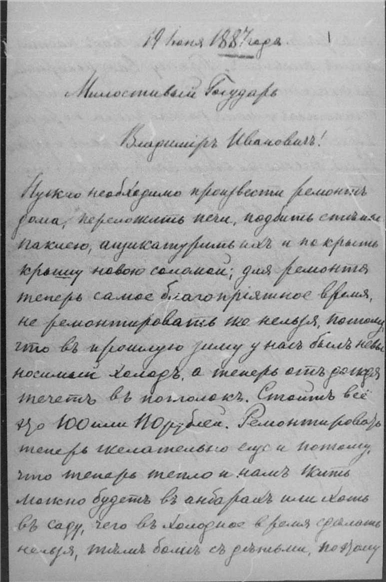 19 Іюня 1887 года.
Милостивый Государь
Владиміръ Ивановичъ!
Нужно необходимо произвести ремонтъ
дома, переложить печи, подбить стѣны
паклею, ащикатурить ихъ и покрыть
крышу новою соломой; для ремонта
теперь самое благопріятное время,
не ремонтировать же нельзя, потому
что въ прошлую зиму у насъ былъ невы
носимый холодъ, а теперь отъ дождя
течетъ въ потолокъ. Стоитъ всё
это 100 или 110 рублей. Ремонтировать
теперь желательно еще и потому,
что теперь тепло и намъ жить
можно будетъ въ анбарахъ или хоть
въ саду, чего въ холодное время сдѣлать
нельзя, тѣмъ болѣе съ дѣтьми, поэтому